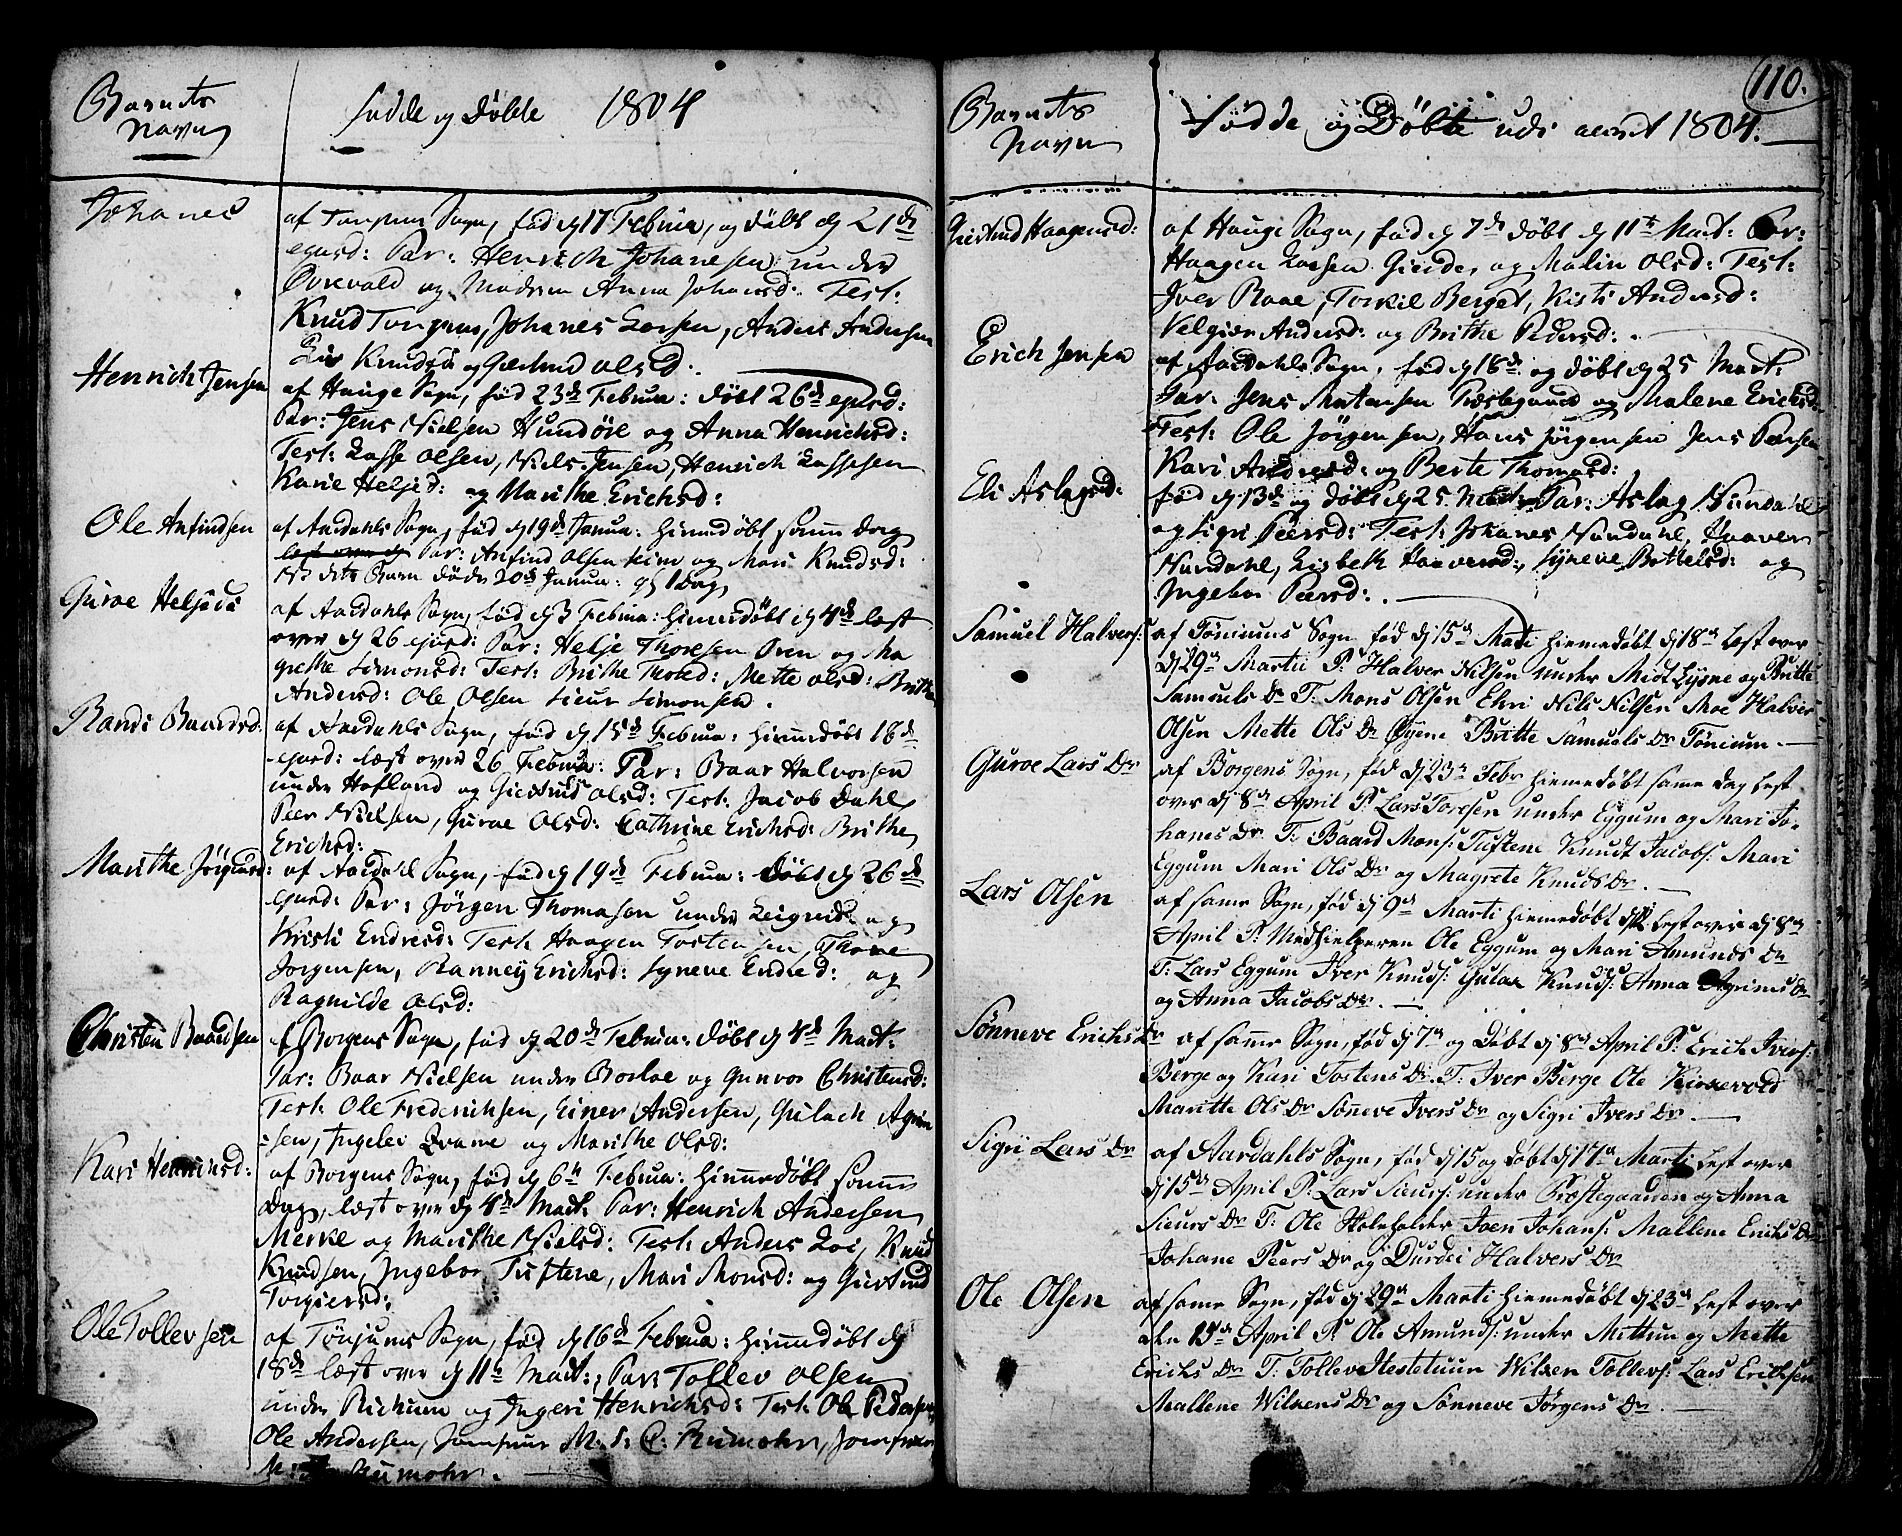 Barnets
Navn
Fødde og Døbte 1804
Johanes
af Tonjums Sogn, fød dj 17 Februa, og døbt dj 21de
ejusd: Par: Henrich Johanesen under
Øvrevald og Madsm Anna Johansd: Test:
Knud Tonjum, Johanes Larsen, Anders Andersen
Knudsd og Gertrud Olsd.
Henrich Jensen
af Hauge Sogn, fød 23de Februa: døbt 26de ejusd:
Par: Jens Nielsen Hundøle og Anna Henrichsd:
Test: Lasse Olsen, Niels Jensen, Henrich Lassesen
Karie Heljed: og Marithe Erichsd:
Ole Anfindsen
af Aardahls Sogn, fød dj 19de Janua: hiemmedøbt samme dag
Par: Anfind Olsen Hiem og Mari Knudsd:
NB dets Barn døde 20de Janua: 1 Dag
Guroe Heljesd
af Aardahls Sogn, fød dj 3 Februa: hiemmedøbt dj 4de læst
over dj 26 ejusd: Par: Helje Thoresen Øren og Ma
grethe Simonsd: Test: Brithe Thosed: Mette Olsd: Brithe
Andersd: Ole Olsen Siur Simonsen.
Randi Baardsd:
af Aardahls Sogn, fød dj 15de Februa: hiemmedøbt 16de
ejusd: læst over 26 Februa: Par: Baar Halvorsen
under Hofland og Giertrud Olsd: Test: Jacob Dahl,
Peer Nielsen, Guroe Olsd: Cathrine Erichsd: Brithe
Erichsd:
Marithe Jørgensd:
af Aardahl Sogn, fød dj 19de Februa: døbt dj 26de
ejusd: Par: Jørgen Thomasen under Leigvid: og
Kristi Endresd: Test: Haagen Tostensen, Thone
Jorgensen, Ranney Erichsd: Syneve Endred: og
Ragnilde Olsd:
Christen Baardsen
af Borgens Sogn, fød dj 20de Februa: døbt dj 4de Mart:
Par: Baar Nielsen under Borloe og Gunvor Christensd:
Test: Ole Frederichsen, Einer Andersen, Gulach Agrim
sen, Ingelev Qvame og Marithe Olsd:
Kari Henrichsd:
af Borgens Sogn, fød dj 6te Februa: hiemmedøbt samme
dag, læst over dj 4de Mart: Par: Henrich Andersen
Merke og Marithe Nielsd: Test: Anders Loi, Knud
Knudsen, Ingebor Tuftene, Mari Monsd: og Giertrud
Torgiersd:
Ole Tollevsen
af Tönjums Sogn, fød dj 16de Februa: hiemmedøbt dj
18de læst over dj 11te Mart:, Par: Tollev Olsen
under Rickum og Ingeri Henrichsd: Test: Ole Pedersen,
Ole Andersen, Jomfrue M. S. C. Rumohr, Jomfrue
M: Rumohr.
110.
Barnets
Navn
Fødde og Døbte udi aaret 1804.
Giertrud Haagensd:
af Hauge Sogn, fød dj 7de døbt dj 11te Mart: Par:
Haagen Larsen Giende, og Malin Olsd: Test:
Iver Raae, Torkil Berget, Kisti Andersd:
Velgier Andersd: og Brithe Pedersd:.
Erich Jensen
af Aardahls Sogn, fød dj 16de og døbt dj 25 Mart:
Par: Jens Matensen Præstegaard og Malene Ericksd:
Test: Ole Jörgensen, Hans Jörgensen Jens Pærsen
Kari Andresd: og Berte Thomasd:
Eli Aslagsd:
fød dj 13de og døbt dj 25 Mart: Par: Aslag Nundahl
og Sigri Peersd: Test: Johanes Nundahl, Haaver
Nundahl, Lisbeth Haaversd:, Syneve Bottelsd: og
Ingebor Peersd:.
Samuel Halvers:
af Töniums Sogn fød dj 15de Marti hiemedöbt dj 18de Lest over
dj 29de Martii P: Halver Nilsen under Midt Lysne og Britte
Samuels Dr T: Mons Olsen Ehri Nils Nilsen Moe Halver
Olsen Mette Ols Dr Öyene Britte Samuels Dr Tönium.
Guroe Lars Dr
af Borgens Sogn, fød dj 23de Febr hiemedøbt same dag Lest
over dj 8de April P: Lars Toresen under Eggum og Mari Jo-
hanes Dr T: Baard Mons: Tuftene Knudt Jacobs: Mari
Eggum Mari Ols Dr og Magrete Knuds Dr.
Lars Olsen
af same Sogn, fød dj 9de Marti hiemedøbt Lest over dj 8de
April P: Medhielperen Ole Eggum og Mari Amunds Dr
T: Lars Eggum Iver Knuds: Gulak Knuds: Anna Agrims Dr
og Anna Jacobs Dr.
Sönneve Erichs Dr
af same Sogn, fød dj 7de og Döbt dj 8de April P: Erich Ivers:
Berge og Kari Tostens Dr. T: Iver Berge Ole Kirkevold
Maritte Ols Dr Sönneve Ivers Dr og Sigri Ivers Dr.
Sigri Lars Dr
af Aardahls Sogn, fød dj 15 og døbt dj 17de Marti Lest over
dj 15de April P: Lars Siurs: under Præstegaarden og Anna
Siurs Dr T: Ole Skoleholder Joen Johans: Mallene Erichs Dr
Johane Peers Dr og Durdei Halvers Dr
Ole Olsen
af same Sogn, fød dj 29de Marti hiemedøbt dj 23de Lest over
den 15de April P: Ole Amunds: under Mittun og Mette
Erichs Dr T: Tollev Hestetuun Wilken Tollevs: Lars Erichsen
Mallene Wilkens Dr og Sönneve Jörgens Dr.